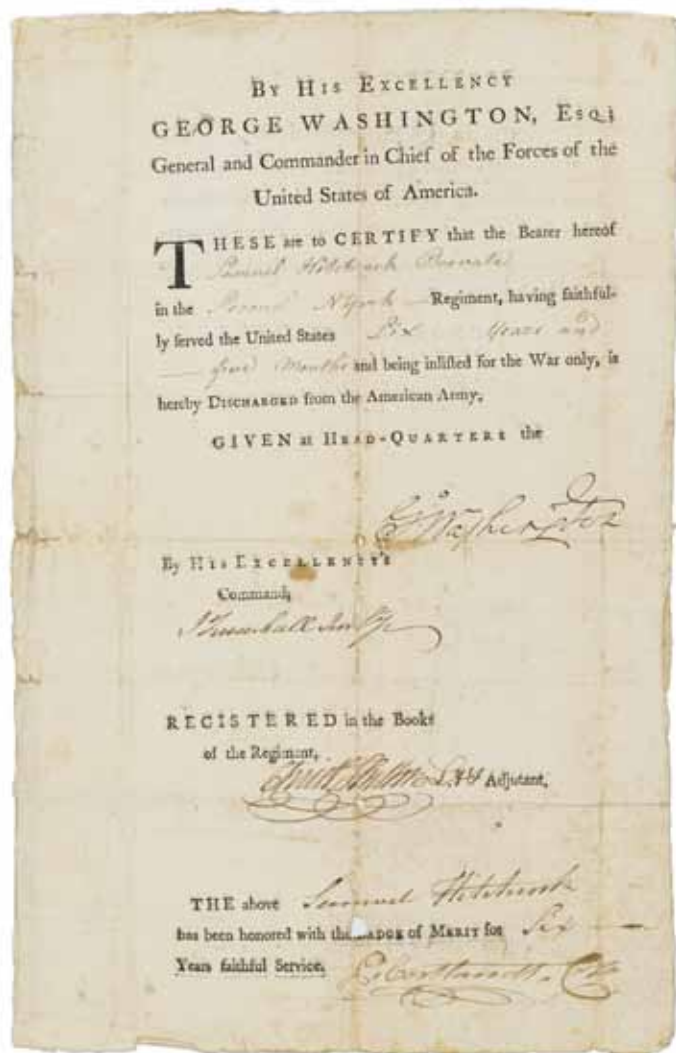 BY HIS EXCELLENCY
GEORGE WASHINGTON, ESQ;
General and Commander in Chief of the Forces of the
United States of America.
THESE are to CERTIFY that the Bearer hereof
Samuel Hitchcock Private
in the Second NYork Regiment, having faithful-
ly served the United States Six Years and
Months and being inlisted for the War only, is
hereby DISCHARGED from the American Army.
GIVEN at HEAD-QUARTERS the
Go Washington
By HIS EXCELLENCY'S
Command,
J Trumbull Jun
REGISTERED in the Books
of the Regiment,
Adjutant.
THE above Samuel Hitchcock
has been honored with the BADGE of MERIT for Six
Years faithful Service.
PCortlandt. Col